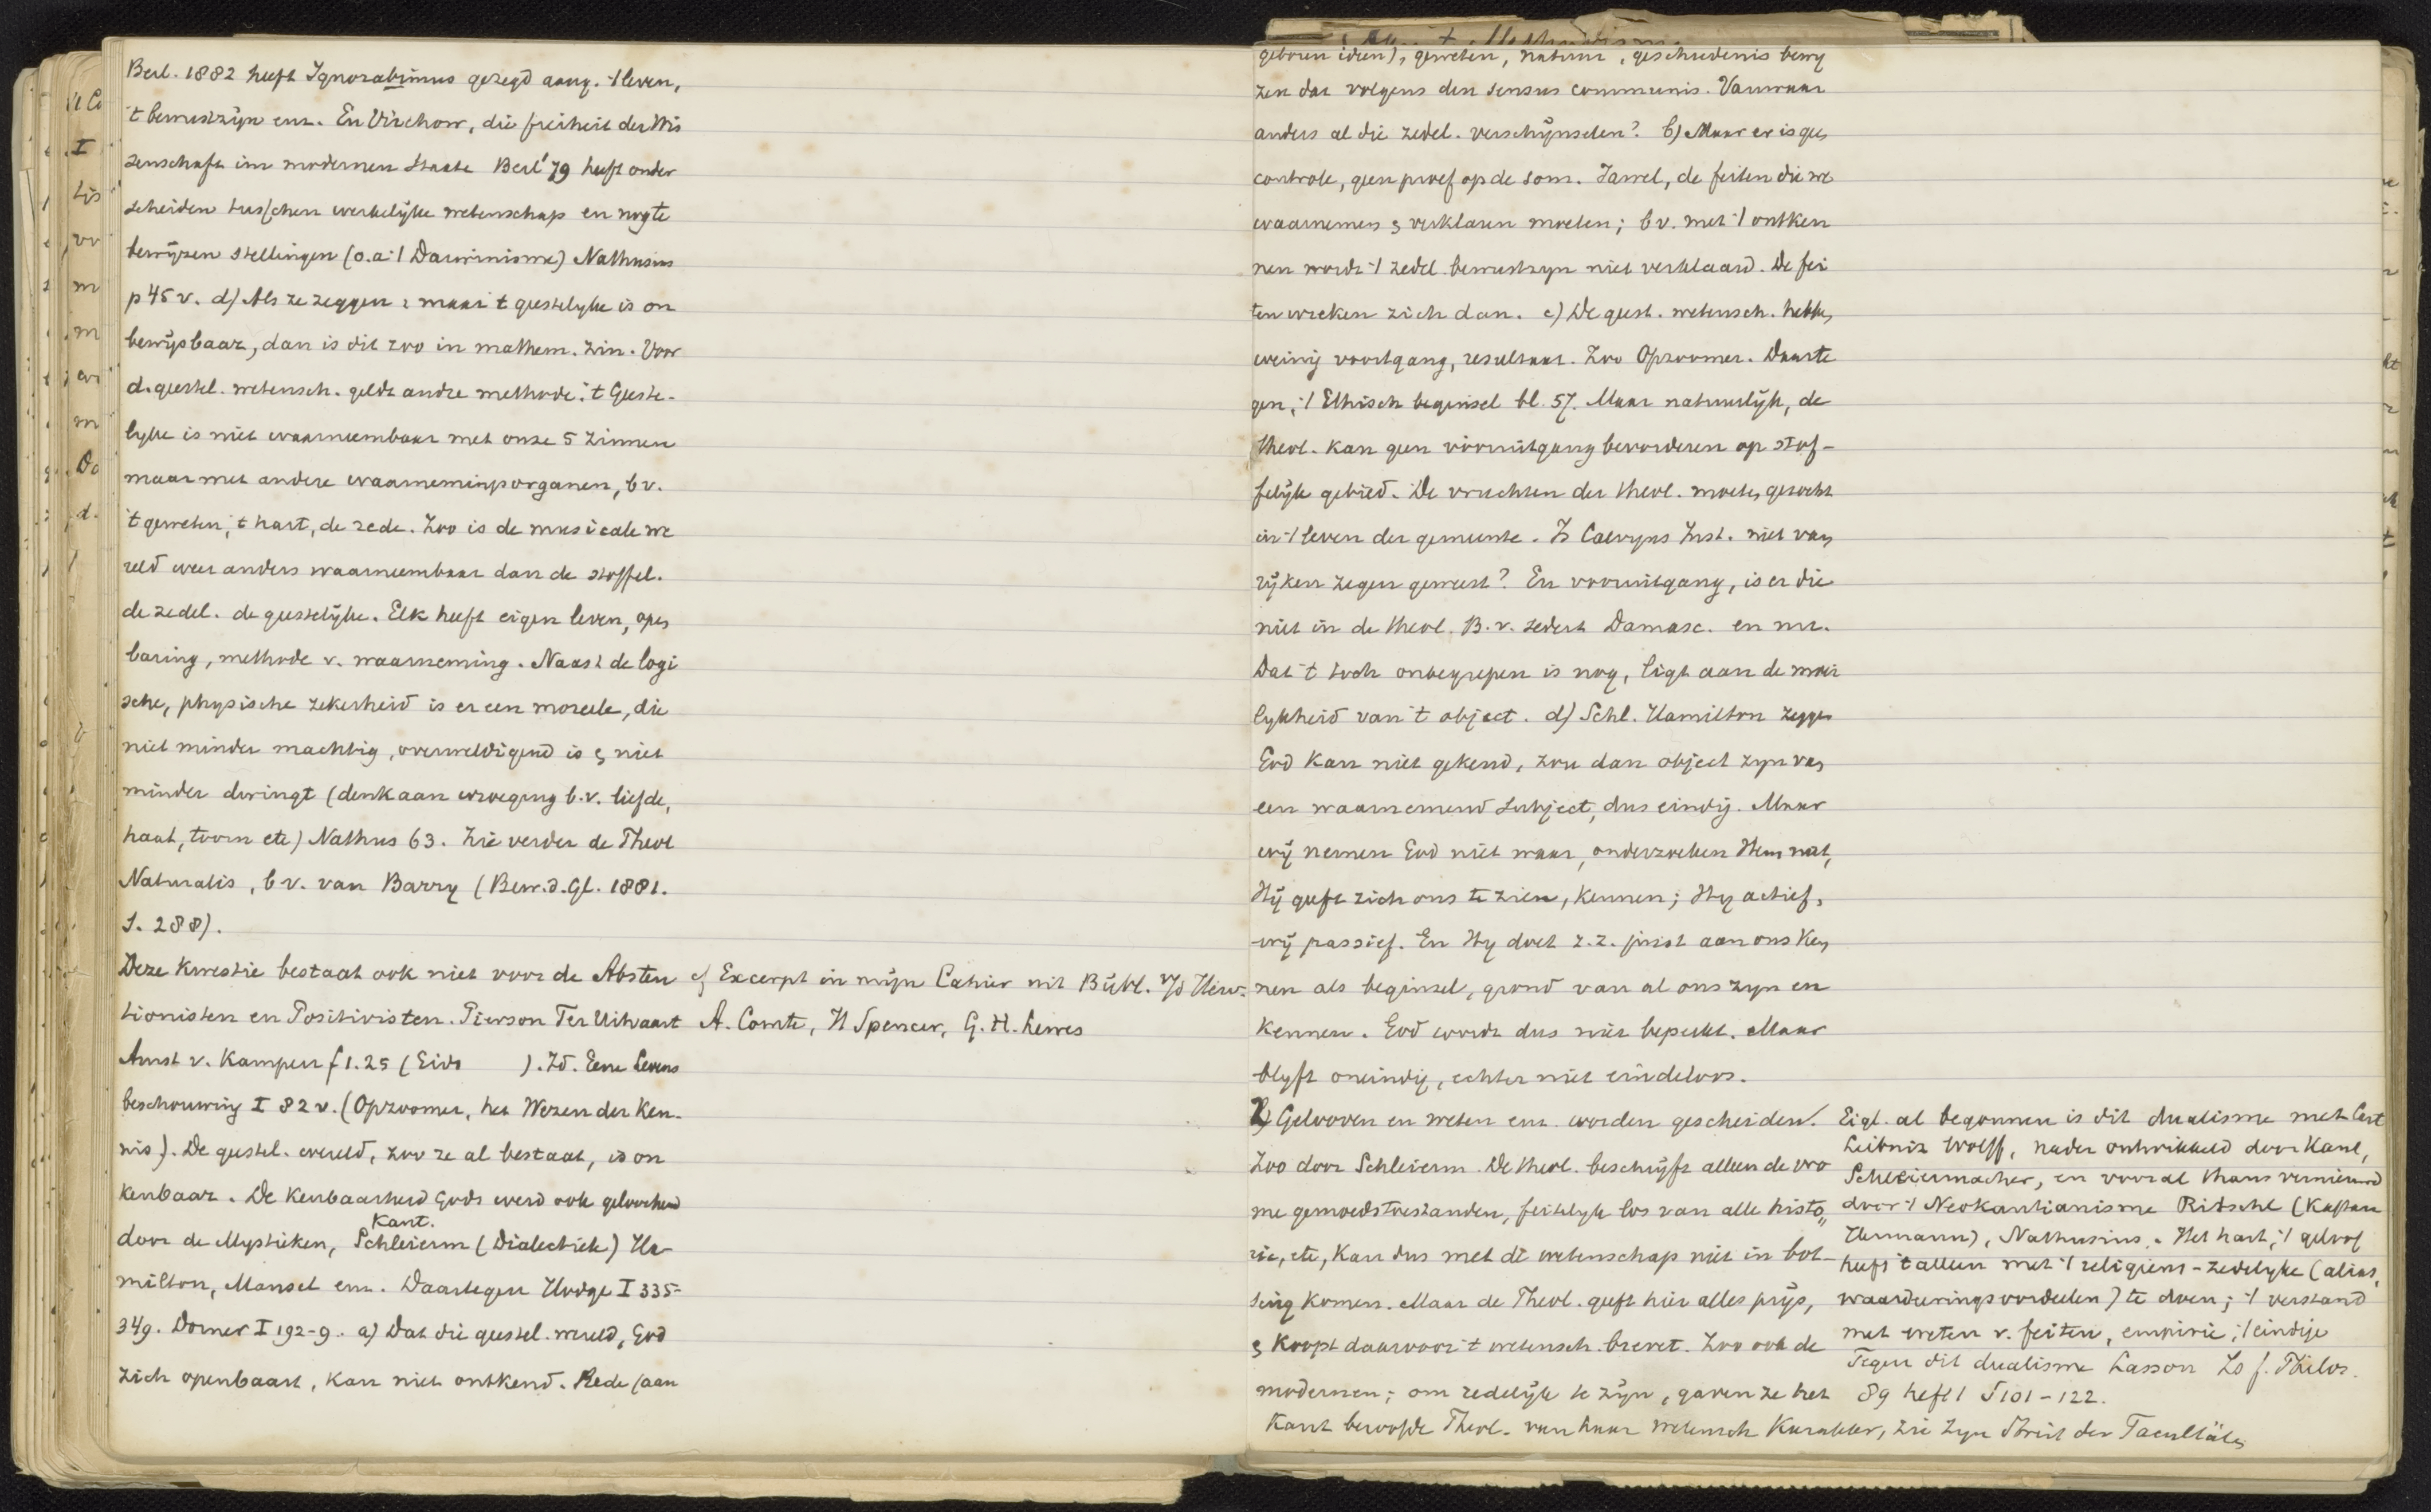 Berl. 1882 heeft Ignorabimus gezegd aang. 't leven,
't bewustzijn enz. En Virchow, die freiheit der Wis
senschaft im modernen Staate Berl '79 heeft onder
scheiden tusschen werkelijke wetenschap en nog te
bewijzen stellingen (o.a. 't Darwinisme) Nathusius
p 45 v. d) Als ze zeggen: maar 't geestelyke is on
bewijsbaar, dan is dit zoo in mathem. zin. Voor
d. geestel. wetensch. geldt andre methode. 't Geeste-
lyke is niet waarneembaar met onze 5 zinnen
maar met andere waarnemingsorganen, bv.
't geweten, 't hart, de rede. Zoo is de musicale we
reld weer anders waarneembaar dan de stoffel.
de zedel. de geestelijke. Elk heeft eigen leven, open
baring, methode v. waarneming. Naast de logi
sche, physische zekerheid is er een moreele, die
niet minder machtig, overweldigend is & niet
minder dwingt (denk aan overweging b.v. liefde,
haat, toorn etc) Nathus 63. Zie verder de Theol
Naturalis, bv. van Barry (Bew. d. Gl. 1881.
S. 288).
Deze kwestie bestaat ook niet voor de Absten
tionisten en Positivisten. Pierson Ter Uitvaart
Amst v. Kampen f 1.25 (Eivo ). Id. Eene Levens
beschouwing I 82 v. (Opzoomer, het Wezen der Ken-
nis). De geestel. wereld, zoo ze al bestaat, is on
kenbaar. De Kenbaarheid Gods werd ook geloochend
Kant.
door de Mystieken, Schleierm (Dialectiek) Ha-
milton, Mansel enz. Daartegen Hodge I 335-
349. Dorner I 192-9. a) Dat die geestel. wereld, God
zich openbaart, kan niet ontkend. Rede (aan
cf Excerpt in mijn Cahier uit Bibl. v/d Herv.
A. Comte, H Spencer, G. H. Lewes
geboren ideen), geweten, natuur, geschiedenis bewij
zen dat volgens den sensus communis. Vanwaar
anders al die zedel. verschijnselen? b) Maar er is geen
controle, geen proef op de som. Jawel, de feiten die we
waarnemen & verklaren moeten; bv. met 't ontken
nen wordt 't zedel. bewustzyn niet verklaard. De fei
ten wreken zich dan. c) De geest. wetensch. hebben
weinig voortgang, resultaat. Zoo Opzoomer. Daarte
gen, 't Ethisch beginsel bl. 57. Maar natuurlijk, de
theol. kan geen vooruitgang bevorderen op stof-
felijk gebied. De vruchten der theol. moeten gezocht
in 't leven der gemeente. Is Calvyns Inst. niet van
rijken zegen geweest? En vooruitgang, is er die
niet in de theol. B.v. sedert Damasc. en nu.
Dat 't toch onbegrepen is nog, ligt aan de moei
lykheid van 't object. d) Schl. Hamilton zeggen
God kan niet gekend, zou dan object zyn van
een waarnemend subject, dus eindig. Maar
wij nemen God niet waar, onderzoeken Hem niet,
Hij geeft zich ons te zien, kennen; Hy actief,
wij passief. En Hy doet z.z. juist aan ons ken
nen als beginsel, grond van al ons zyn en
kennen. God wordt dus niet beperkt. Maar
blyft oneindig, echter niet eindeloos.
2) Gelooven en weten enz. worden gescheiden.
Zoo door Schleierm. De theol. beschrijft alleen de vro
me gemoedstoestanden, feitelyk los van alle histo
rie, etc, kan dus met de wetenschap niet in bot-
sing komen. Maar de Theol. geeft hier alles prijs,
& koopt daarvoor 't wetensch. brevet. Zoo ook de
modernen; om redelijk te zijn, gaven ze het
Kant beroofde Theol. van haar wetensch karakter, zie zyn Streit der Facultäten
Eigl. al begonnen is dit dualisme met Cart
Leibniz Wolff, nader ontwikkeld door Kant,
Schleiermacher, en vooral thans vernieuwd
door 't Neokantianisme Ritschl (Kaftan
Hermann), Nathusius. Het hart, 't geloof
heeft 't alleen met 't religieus-zedelyke (alias,
waardeeringsoordeelen) te doen; 't verstand
met weten v. feiten, empirie, 't eindige
Tegen dit dualisme Lasson Zs f. Philos.
89 heft 1 S 101-122.